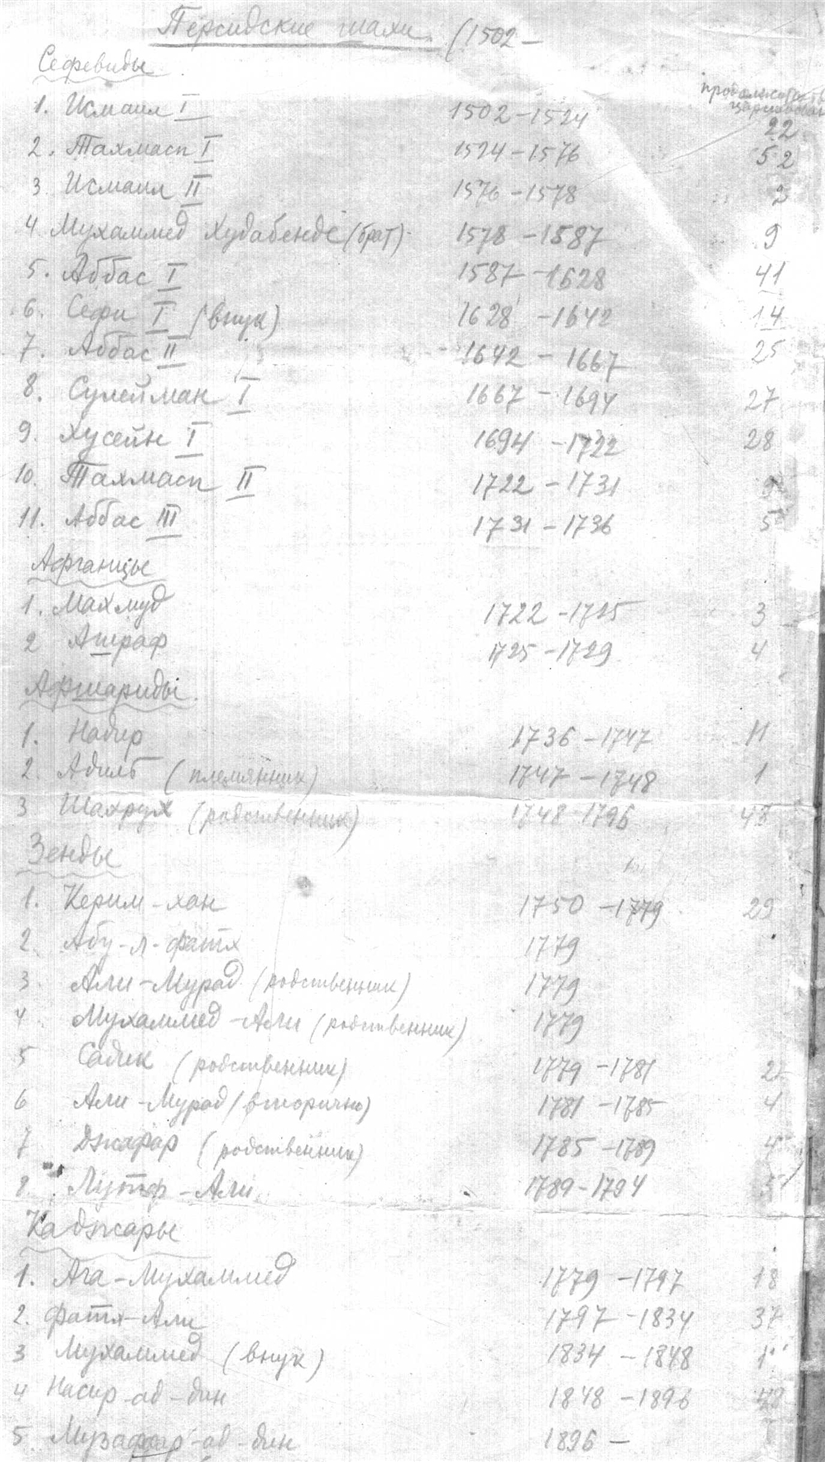 Персидские шахи (1502 –
Сефевиды
продолжительность царствования
1. Исмаил I 1502 – 1524 22
2. Тахмасп I 1524 – 1576 52
3 Исмаил II 1576 – 1578 2
4 Мухаммед Худабенде (брат) 1578 – 1587 9
5. Аббас I 1587 – 1628 41
6. Сефи I (внук) 1628 – 1642 14
7. Аббас II 1642 – 1667 25
8. Сулейман I 1667 – 1694 27
9. Хусейн I 1694 – 1722 28
10. Тахмасп II 1722 – 1731 9
11. Аббас III 1731 – 1736 5
Афганцы
1. Махмуд 1722 – 1725 3
2 Ашраф 1725 – 1729 4
Афшариды
1. Надир 1736 – 1747 11
2. Адиль (племянник) 1747 – 1748 1
3 Шахрух (родственник) 1748 – 1796 48
Зенды
1. Керим-хан 1750 – 1779 29
2. Абу-л-фатх 1779
3 Али-Мурад (родственник) 1779
4 Мухаммед-Али (родственник) 1779
5 Садик (родственник) 1779 – 1781 2
6 Али-Мурад (вторично) 1781 – 1785 4
7 Джафар (родственник) 1785 – 1789 4
8 Лутф-Али 1789 – 1794 5
Каджары
1. Ага-Мухаммед 1779 – 1797 18
2. Фатх-Али 1797 – 1834 37
3 Мухаммед (внук) 1834 – 1848
4 Насир-ад-дин 1848 – 1896 48
5. Музафар-ад-дин 1896 –